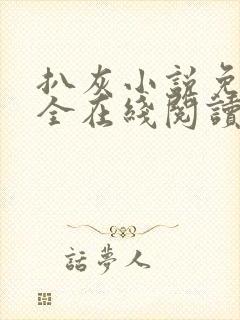 扒灰小説免
全在綫閱讀
話夢人